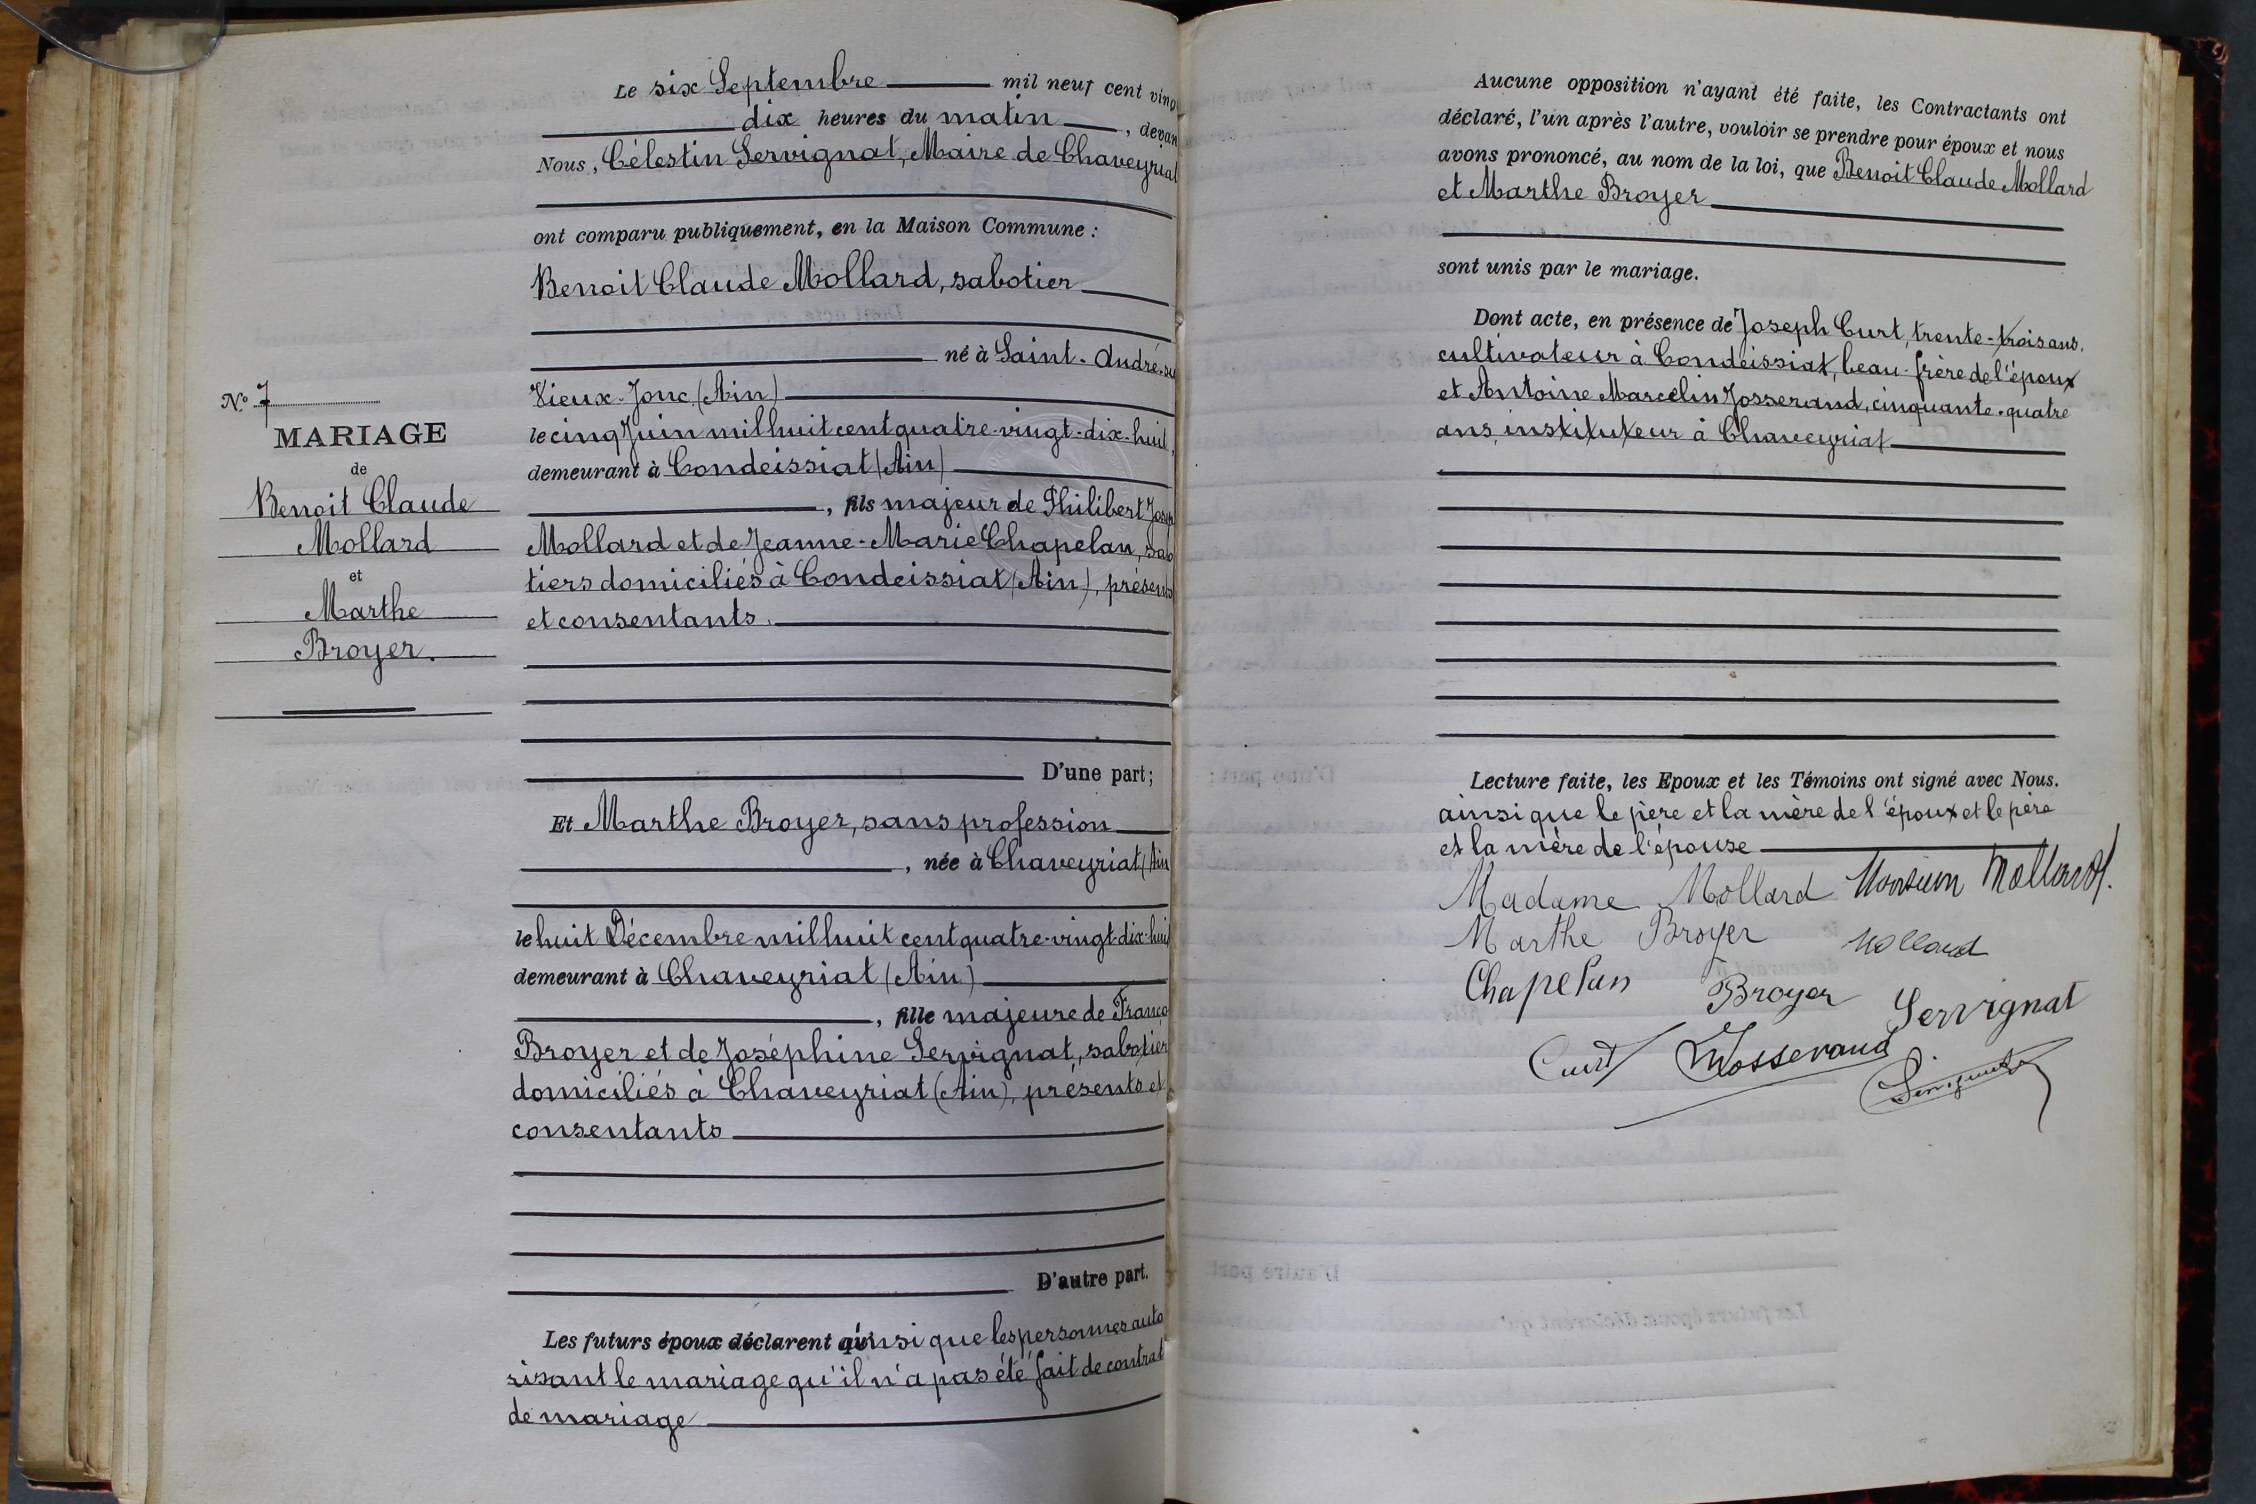 Le six Septembre mil neuf cent ving
dix heures du matin, devan
Nous, Célestin Servignat, Maire de Chaveyriat
ont comparu publiquement, en la Maison Commune :
Benoit Claude Mollard, sabotier
né à Saint-André-su
Vieux-Jonc (Ain)
le cinq Juin mil huit cent quatre-vingt-dix-huit,
demeurant à Condeissiat (Ain)
, fils majeur de Philibert Josep
Mollard et de Jeanne-Marie Chapelan, sabo
tiers domiciliés à Condeissiat (Ain), présents
et consentants.
D'une part;
Et Marthe Broyer, sans profession
, née à Chaveyriat (Ain
le huit Décembre mil huit cent quatre-vingt-dix-huit
demeurant à Chaveyriat (Ain)
, fille majeure de Franço
Broyer et de Joséphine Servignat, sabotier
domiciliés à Chaveyriat (Ain), présents et
consentants
D'autre part.
Les futurs époux déclarent ainsi que les personnes auto
risant le mariage qu'il n'a pas été fait de contrat
de mariage
N.º 7
MARIAGE
de
Benoit Claude
Mollard
et
Marthe
Broyer.
Aucune opposition n'ayant été faite, les Contractants ont
déclaré, l'un après l'autre, vouloir se prendre pour époux et nous
avons prononcé, au nom de la loi, que Benoit Claude Mollard
et Marthe Broyer
sont unis par le mariage.
Dont acte, en présence de Joseph Curt, trente-trois ans,
cultivateur à Condeissiat, beau-frère de l'époux
et Antoine Marcelin Josserand, cinquante-quatre
ans, instituteur à Chaveyriat
Lecture faite, les Epoux et les Témoins ont signé avec Nous.
ainsi que le père et la mère de l'époux et le père
et la mère de l'épouse
Madame Mollard Monsieur Mollard.
Marthe Broyer Mollard
Chapelan Broyer Servignat
Curt Josserand Servignat